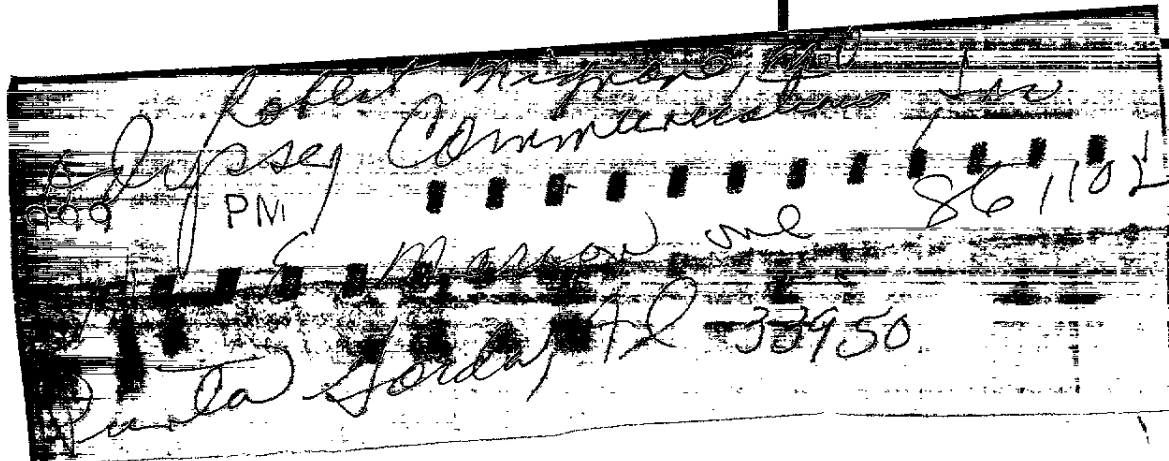 Robert
Odyssey Communications Inc
999 PM 861102
E Marion
Punta Gorda, Fl 33950